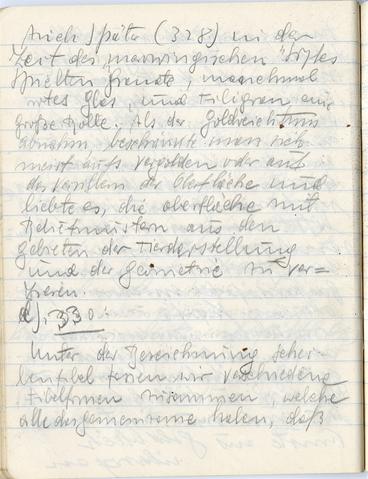 Auch später (328) in der
Zeit des merowingischen Stiles
spielten Granate, manchmal
rotes Glas, und Filigran eine
große Rolle. Als der Goldreichtum
abnahm, beschränkte man sich
meist aufs Vergolden oder auf
das der Oberfläche und
liebte es, die Oberfläche mit
Zeltmustern aus den
Gebieten der Tierdarstellung
und der Geometrie zu ver=
zieren.
330.
Unter der Bezeichnung Schei-
benfibel fassen wir verschiedene
Fibelformen zusammen, welche
alle das gemeinsame haben, daß